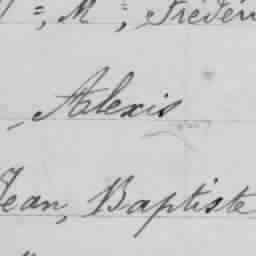 M, Fréderi
Alexis
Jean, Baptiste